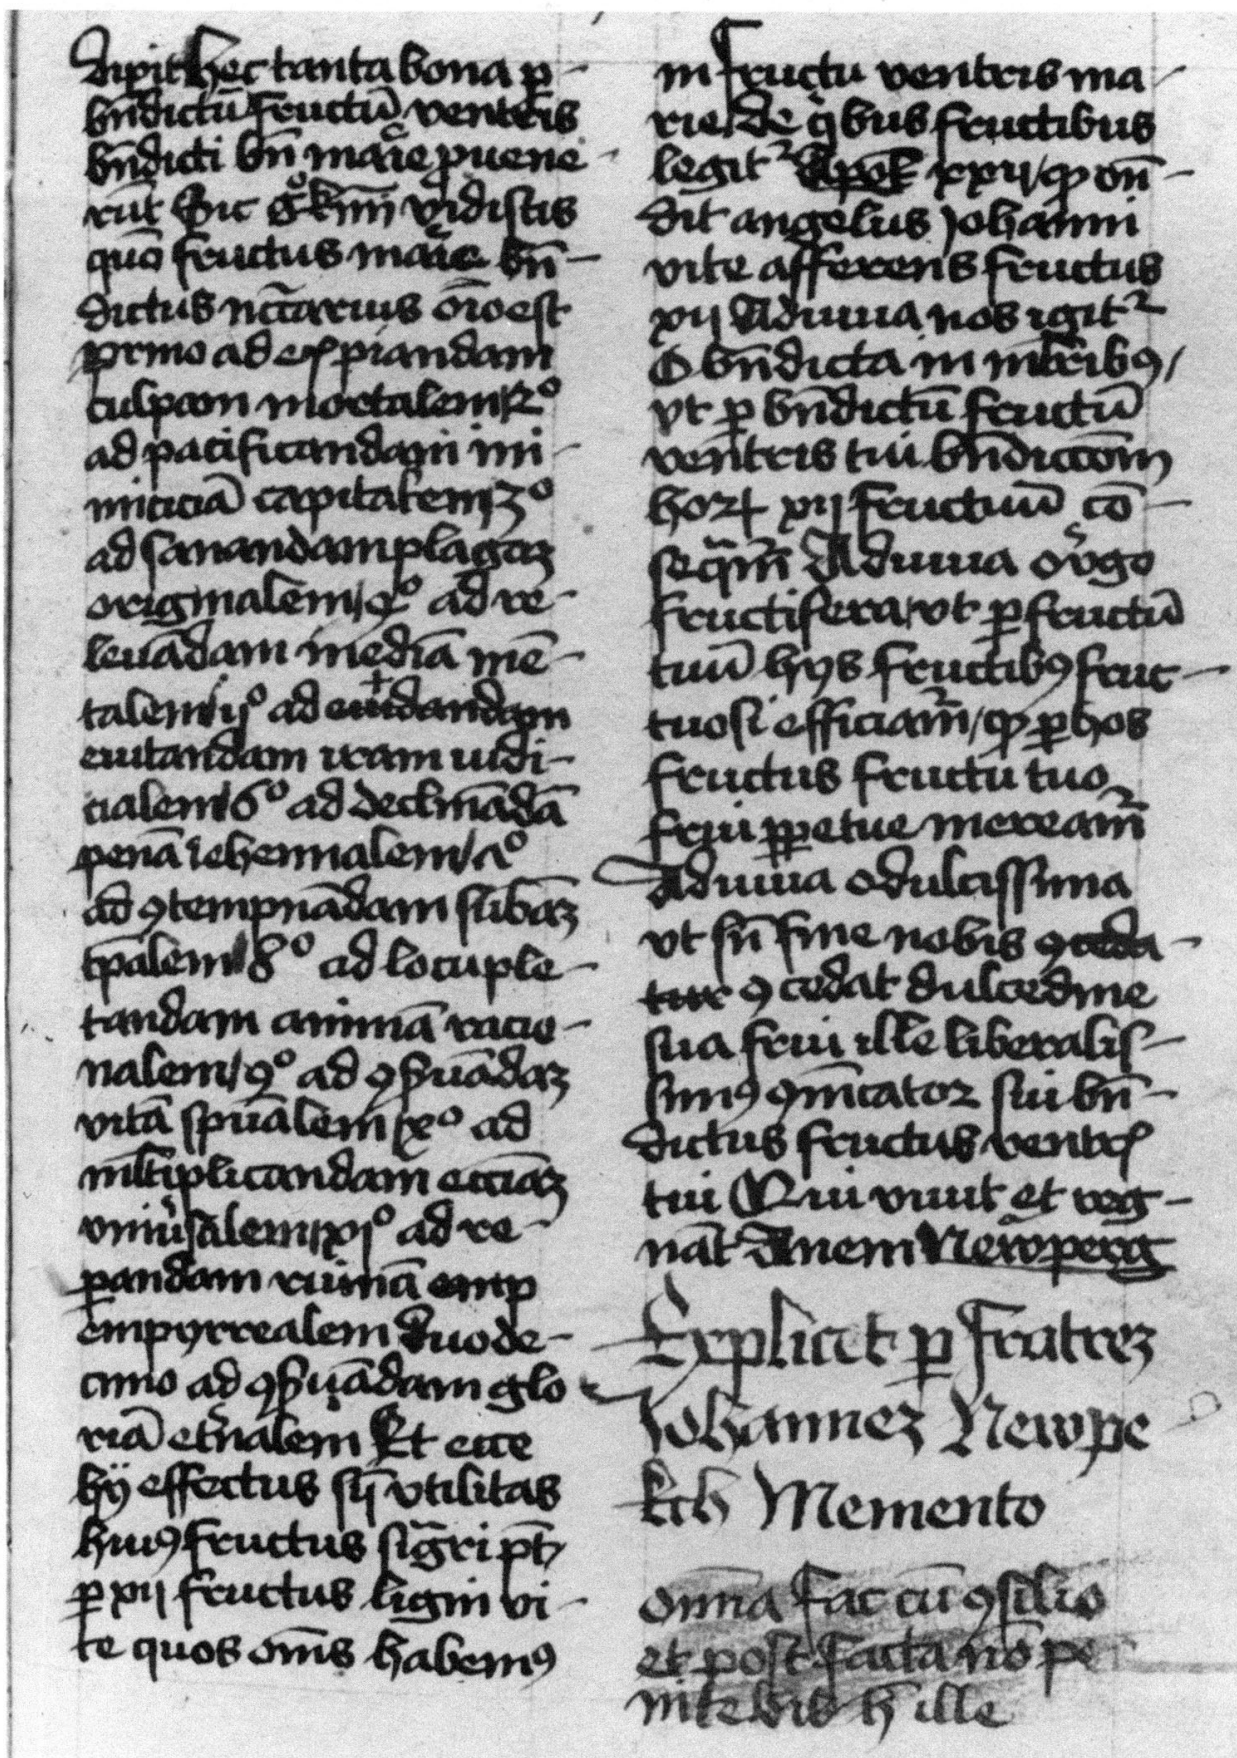 dixit hec tanta bona p
bn̄dictū fructū ventris
bn̄dicti bn̄ marie puene
rūt Sic vidistis
quō fructus marie bn̄
dictus nccarius oīo est
prmo ad expiandam
culpam mortalem 2º
ad pacificandam ini
miciciā capitalem 3º
ad sanandam plagaz
originalem 4º ad re
leuādam mediā mē
talem 5º ad euidandam
euitandam iram iudi
cialem 6º ad declinādā
penā iehennalem 7º
ad ꝯtempnādam
tp̄alem 8º ad locuple
tandam animā racio
nalem 9º ad ꝯs̄uādaz
vitā spūalem xº ad
ml̄tiplicandam ecciaz
vniūsalem xjº ad re
ꝑandam ruinā emp
empyrrealem duode
cimo ad ꝯs̄uādam glo
riā et̄nalem Et ecce
hÿ effectus utilitas
huiꝰ fructus sigͣri pn̄t
ꝑ xij fructus ligni vi
te quos om̄s habemꝰ
in fructu ventris ma
rie de qͥbus fructibus
legitᷣ Apok xxij ꝙ on̄
dit angelus Johanni
vite afferens fructus
xij Adiuua nos igitᷣ
O bn̄dicta in ml̄ribꝰ
vt ꝑ bn̄dictū fructū
ventris tui bn̄diccōm
hoꝝ xij fructuū cō
seqͣm̄ Adiuua o vͥgo
fructifera vt ꝑ fructū
tuū hÿs fructibꝰ fruc
tuosi efficiam̄ ꝙ ꝑ hos
fructus fructu tuo
frui ꝑpetue meream̄
Adiuua o dulcissima
vt sn̄ fine nobis ꝯceda
tur ꝯcedat dulcedine
sua frui ille liberalis
simꝰ ꝯm̄icator sui bn̄
dictus fructus ventꝭ
tui Qui viuit et reg
nat Amem Newperg
Explicit ꝑ fratrez
Johannez Newpe
kch Memento
Om̄ia fac cū ꝯsilio
et post facta nō pe
nitebis h ille